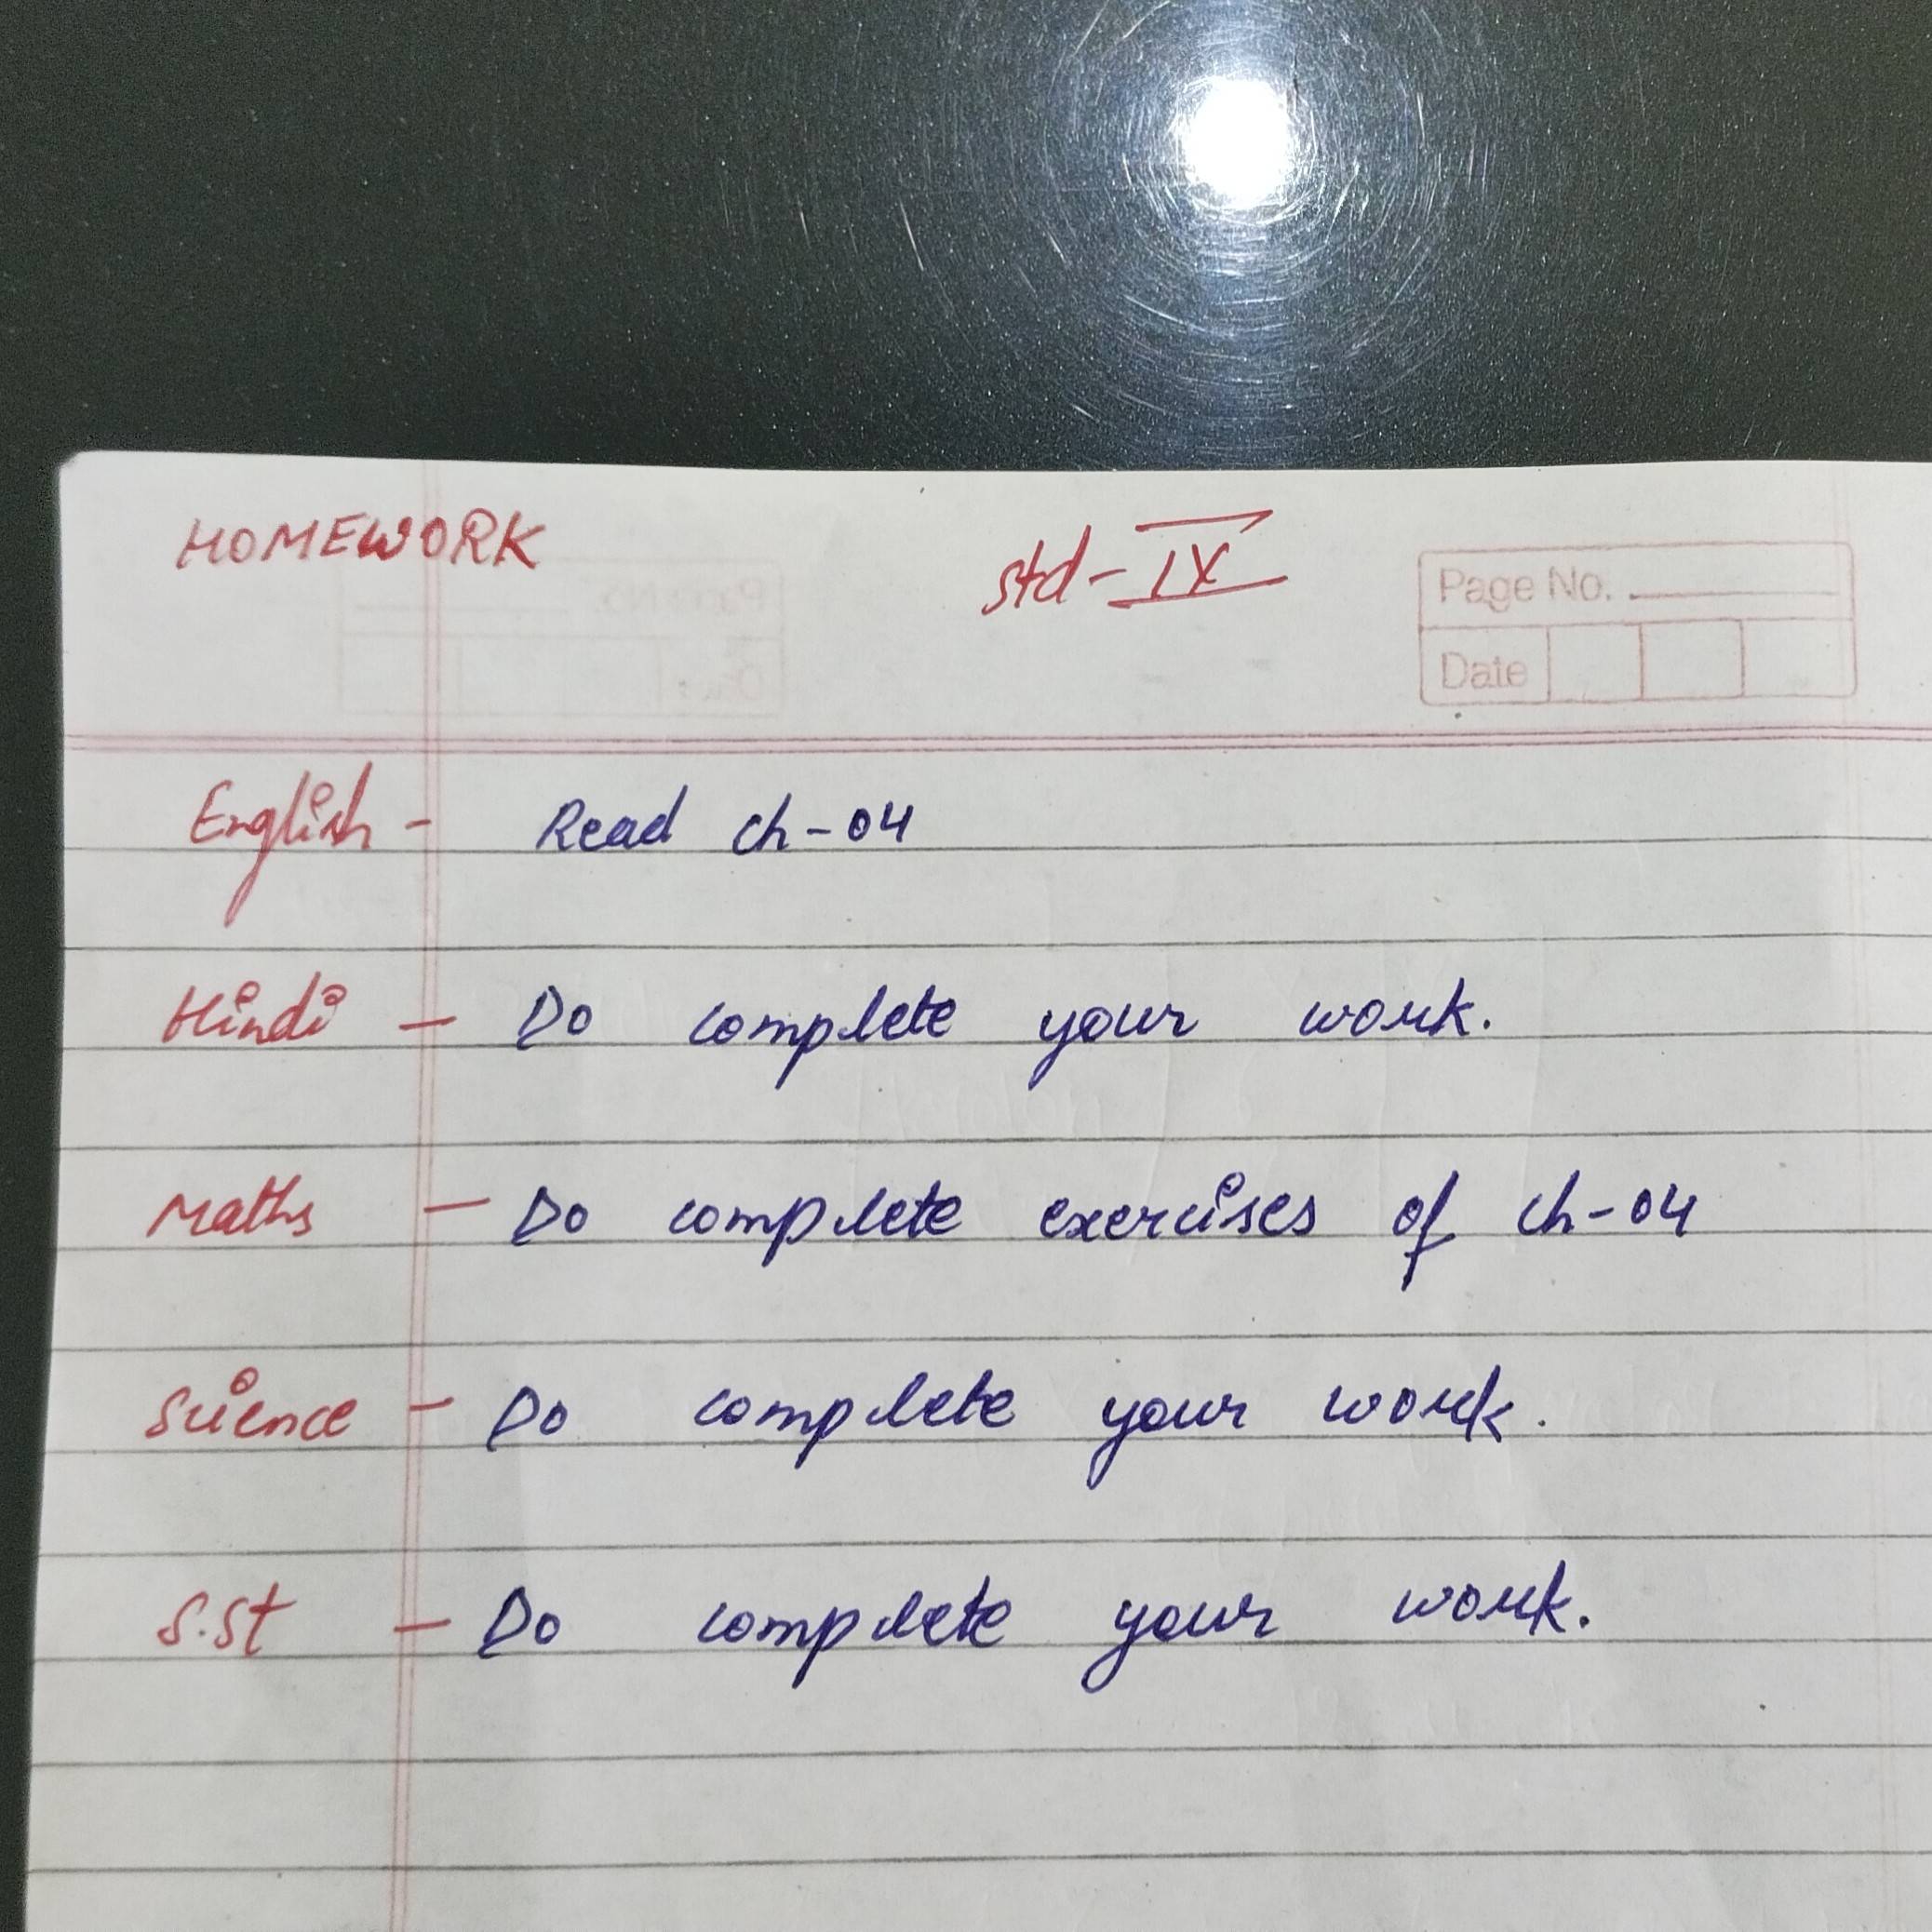 HOMEWORK
std-IX
Page No.
Date
English - Read ch-04
Hindi - Do complete your work.
Maths - Do complete exercises of ch-04
Science - Do complete your work.
S.St - Do complete your work.